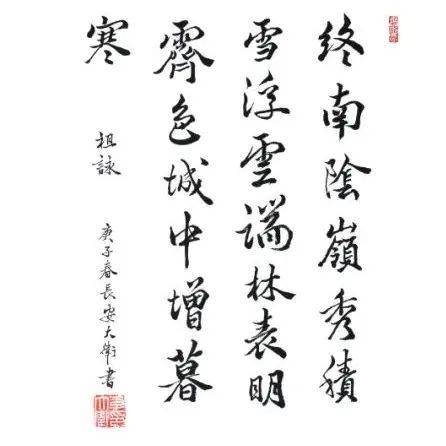 終南陰嶺秀積
雪浮雲端林表明
霽色城中增暮
寒
祖詠
庚子春長安大衛書